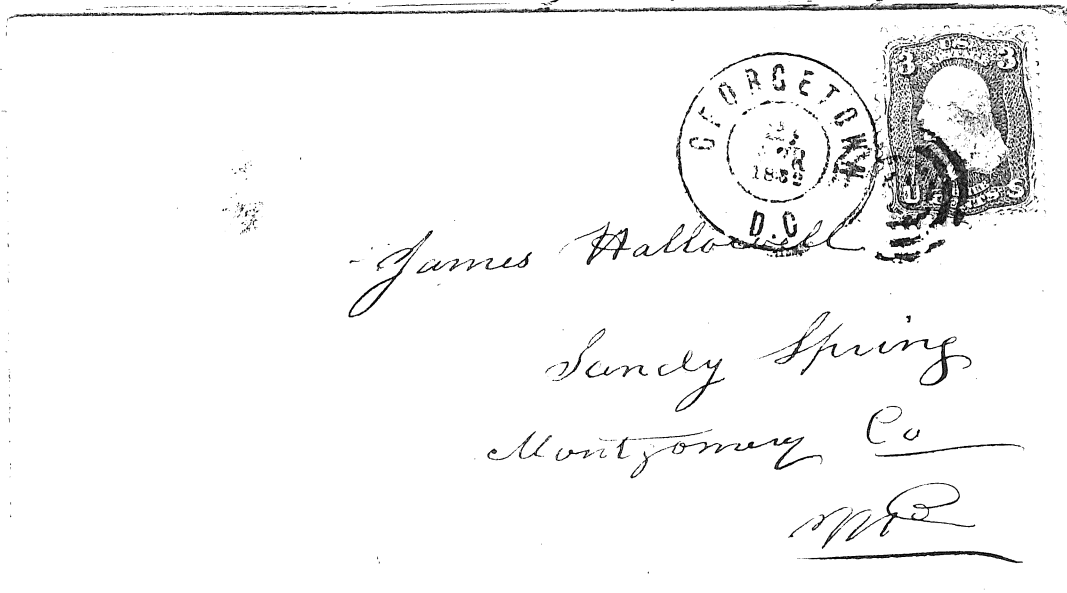 GEORGETOWN
APR
D.C
3 U.S. 3
U S
James Hallowell
Sandy Spring
Montgomery Co
Md